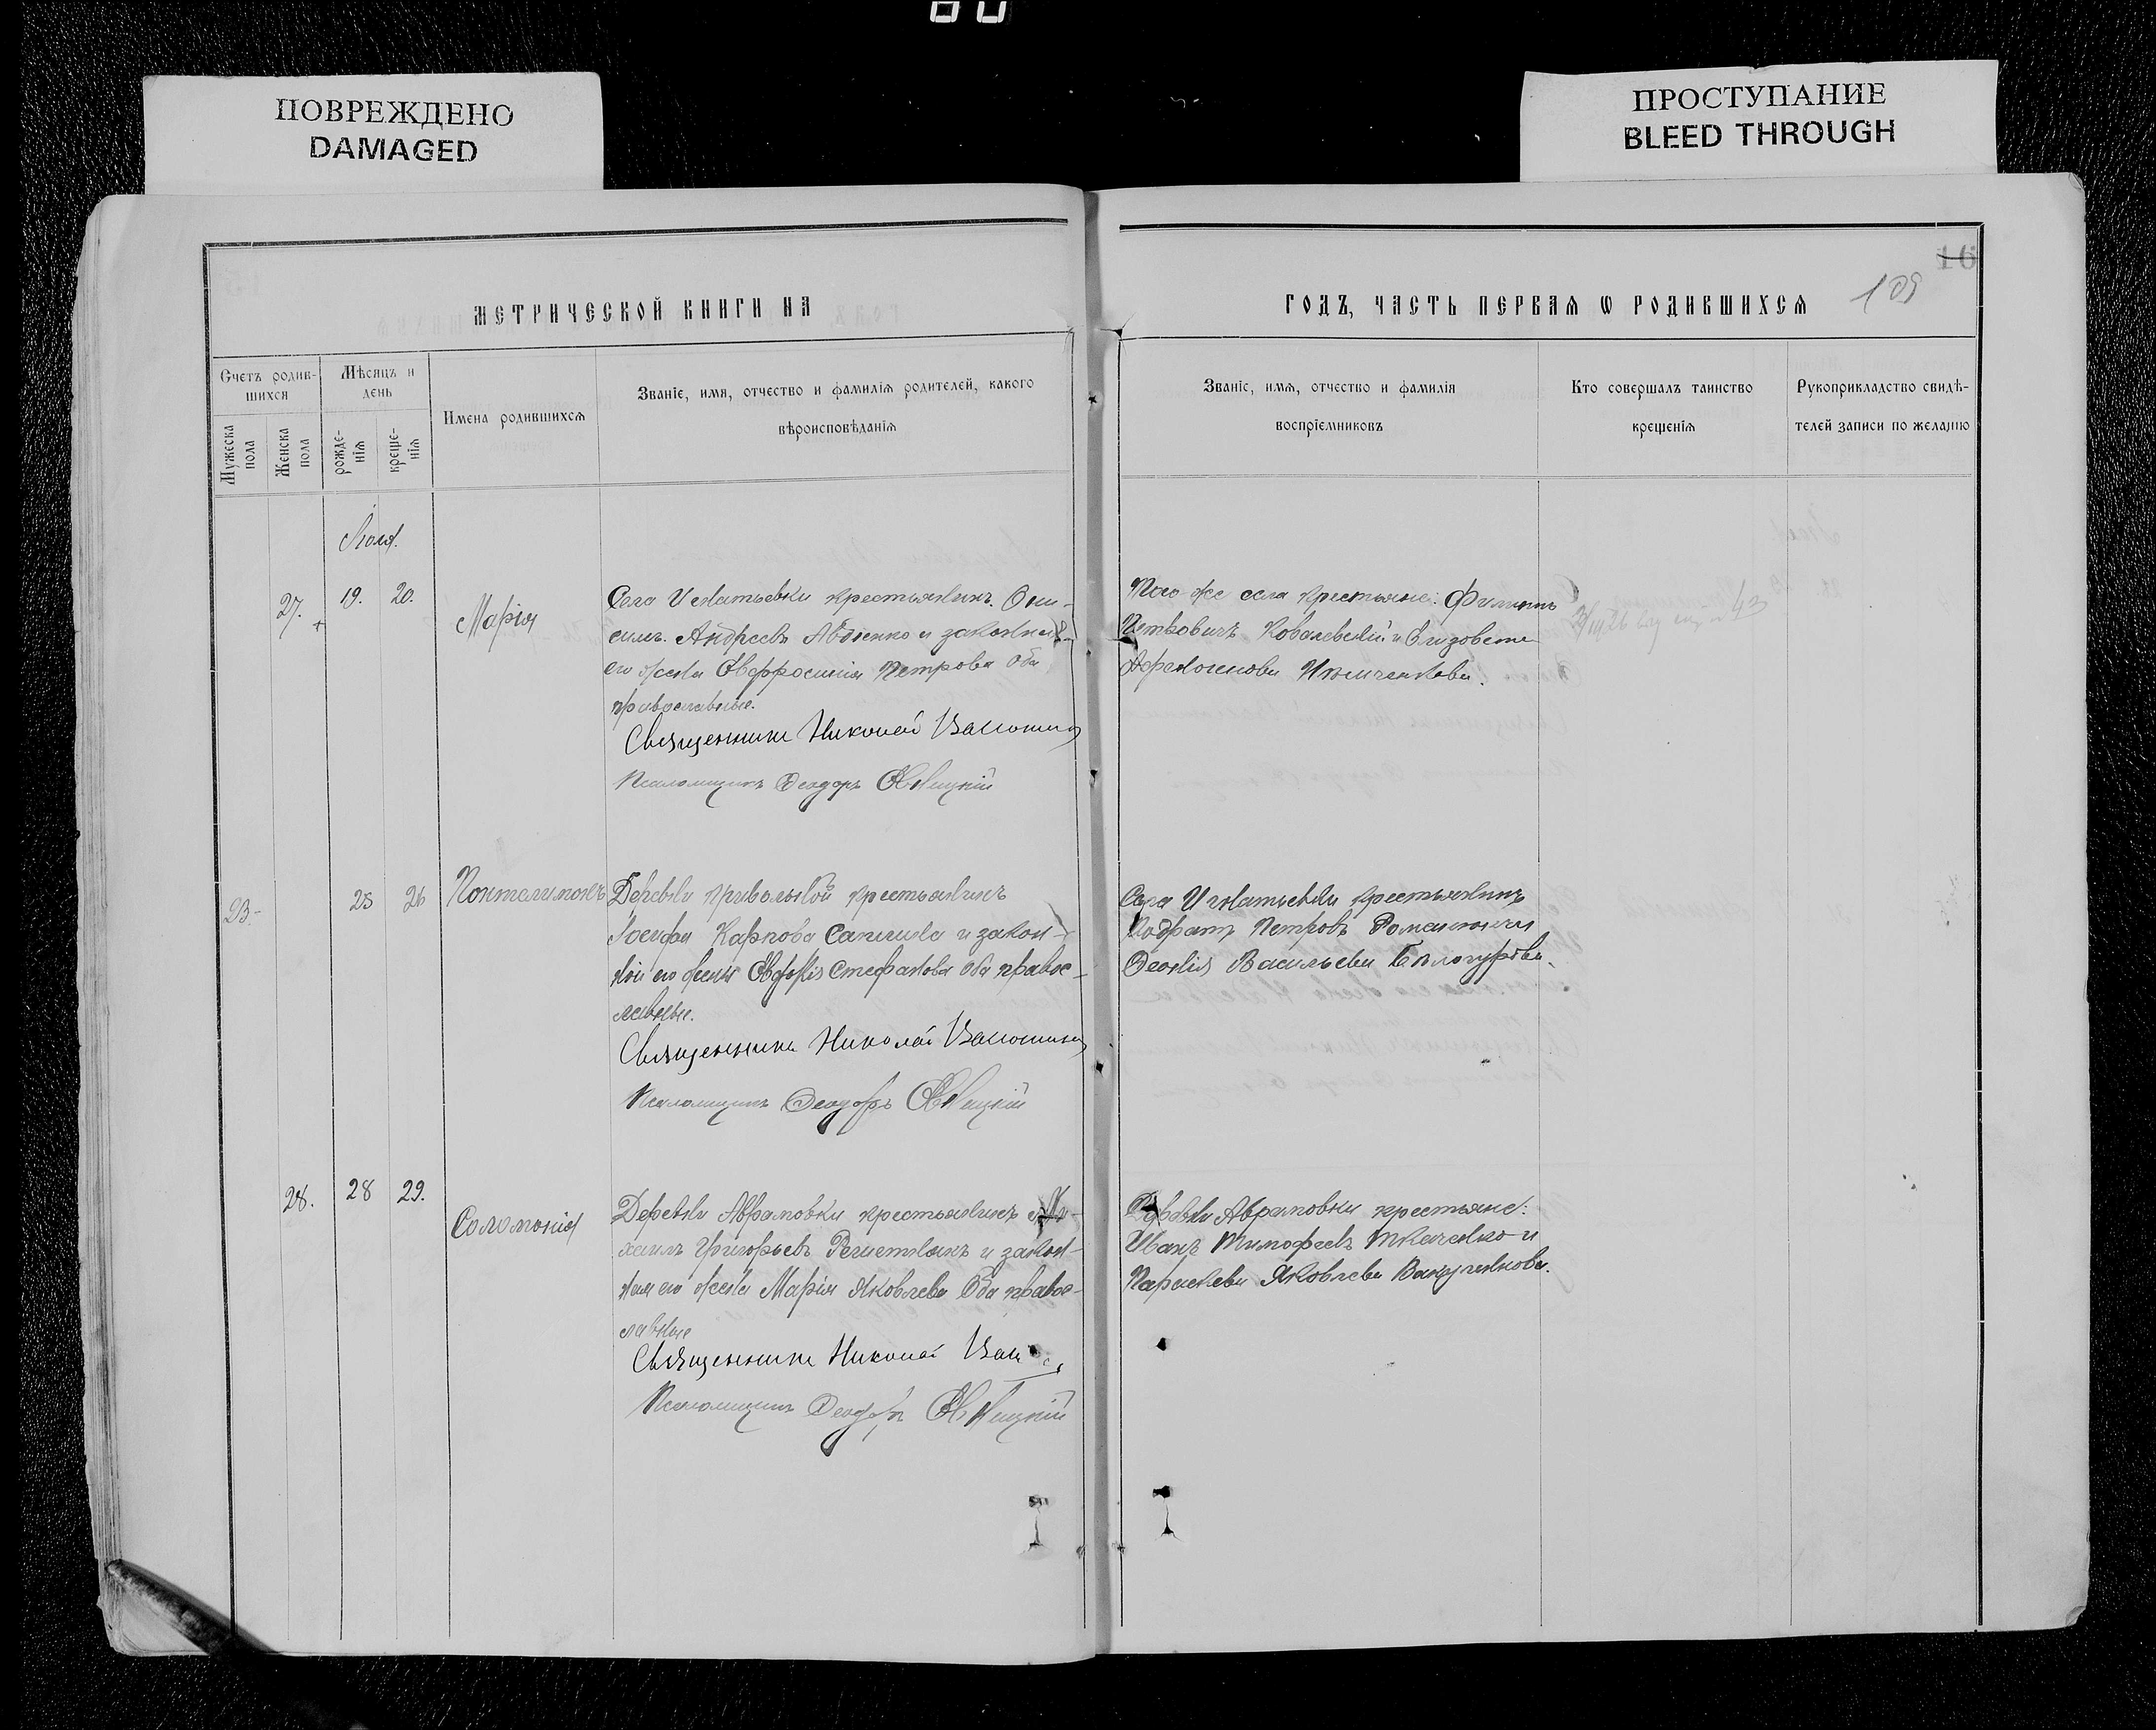 ПОВРЕЖДЕНО
DAMAGED
ПРОСТУПАНИЕ
BLEED THROUGH
МЕТРИЧЕСКОЙ КНИГИ НА
ГОДЪ, ЧАСТЬ ПЕРВАЯ Ѡ РОДИВШИХСЯ
16
109
Счетъ родив-
шихся
Мѣсяцъ и
день
Имена родившихся
Званіе, имя, отчество и фамилія родителей, какого
вѣроисповѣданія
Мужеска
пола
Женска
пола
рожде-
нія
креще-
нія
Званіе, имя, отчество и фамилія
воспріемниковъ
Кто совершалъ таинство
крещенія
Рукоприкладство свидѣ-
телей записи по желанію
27.
19.
20.
Марія
Села Игнатьевки крестьянинъ Они-
симъ Андреевъ Авдіенко и законная
его жена Евфросинія Петрова оба
православные.
Священникъ Николай
Псаломщикъ Ѳеодоръ
Того же села крестьяне: Филиппъ
Петровичъ Ковалевскій и Елизавета
23-
25
26
Понталимонъ
Деревни Привольной крестьянинъ
Іосифа Карпова и закон-
ной его жены Стефанова оба правос-
лавные.
Священникъ Николай
Псаломщикъ Ѳеодоръ
Села Игнатьевки крестьянинъ
Кодратъ Петровъ
Ѳеонія Васильева Бѣлогурова.
28.
28
29.
Соломонія
Деревни Аврамовки крестьянинъ Ми-
хаилъ Григорьевъ Решетнякъ и закон-
ная его жена Марія Яковлева Оба правос-
лавные
Священникъ Николай
Псаломщикъ Ѳеодоръ
Деревни Аврамовки крестьяне:
Иванъ Тимофеевъ Ткаченко и
Параскева Яковлева Вакуленкова.